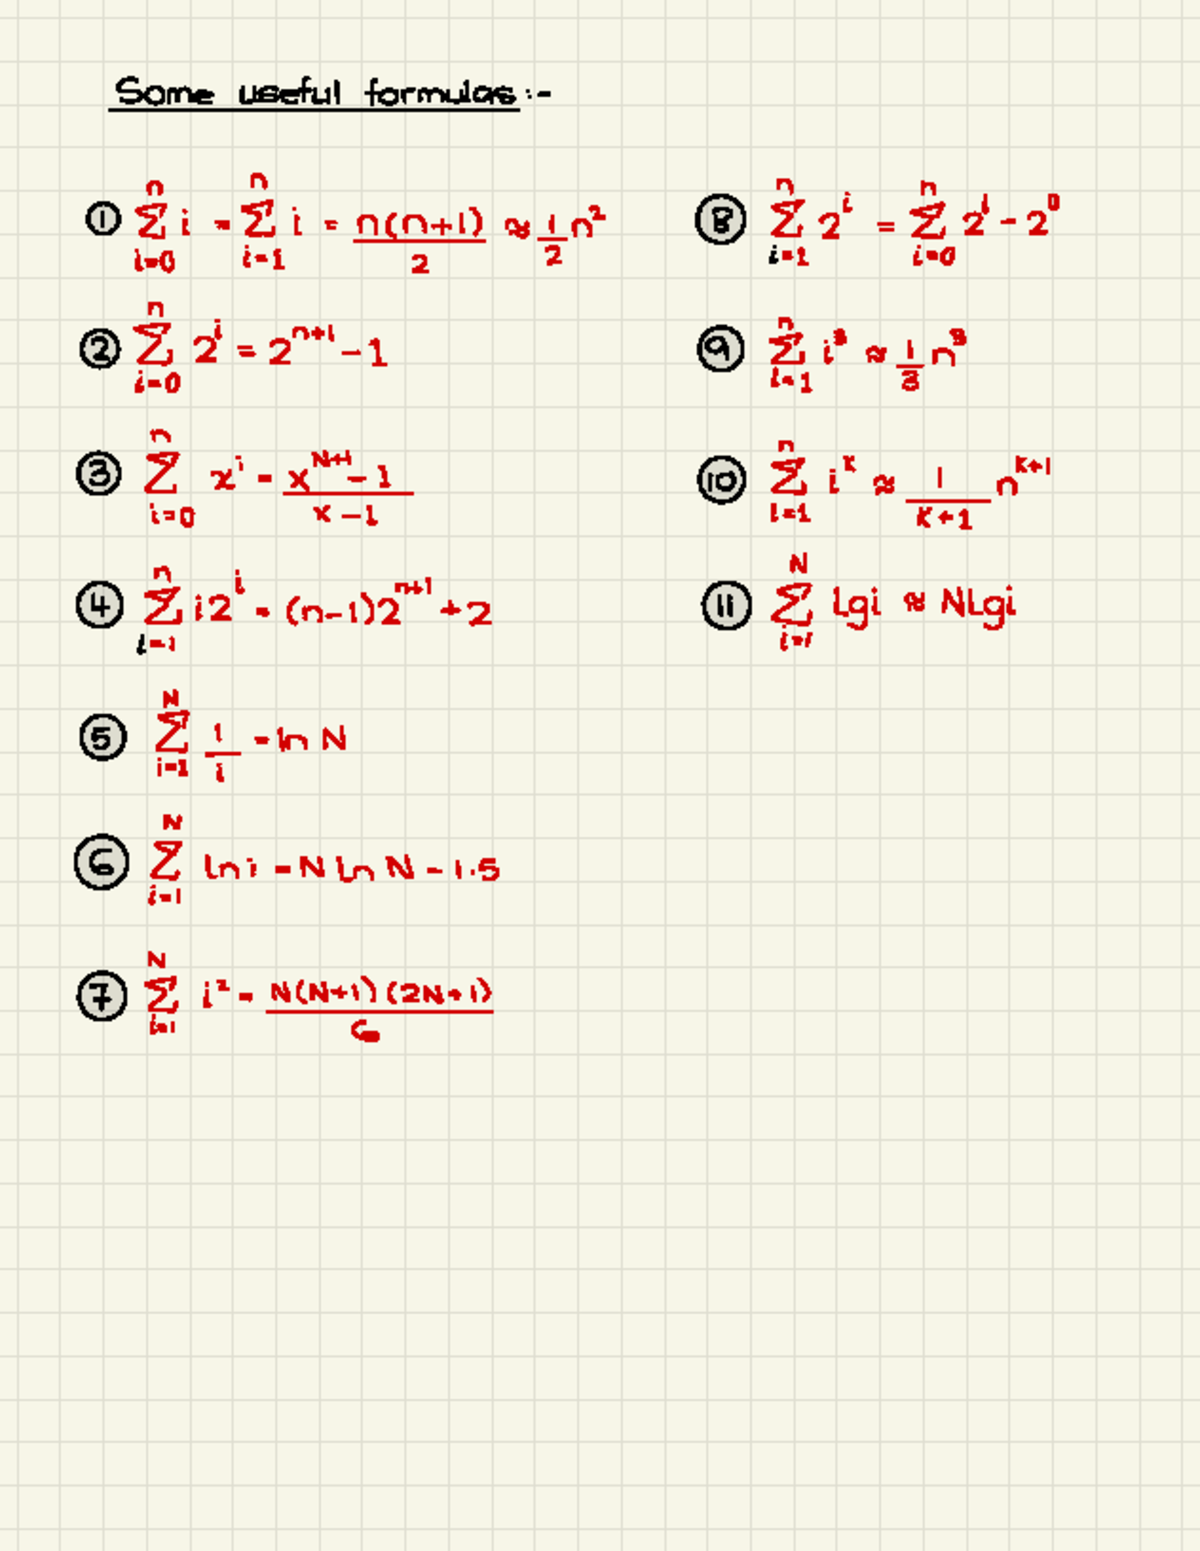 Some useful formulas :-
① ∑_{i=0}^{n} i = ∑_{i=1}^{n} i = n(n+1)/2 ≈ 1/2 n²
② ∑_{i=0}^{n} 2^i = 2^{n+1} - 1
③ ∑_{i=0}^{n} x^i = (x^{N+1} - 1)/(x - 1)
④ ∑_{i=1}^{n} i2^i = (n-1)2^{n+1} + 2
⑤ ∑_{i=1}^{N} 1/i = ln N
⑥ ∑_{i=1}^{N} ln i = N ln N - 1.5
⑦ ∑_{i=1}^{N} i² = N(N+1)(2N+1)/6
⑧ ∑_{i=1}^{n} 2^i = ∑_{i=0}^{n} 2^i - 2^0
⑨ ∑_{i=1}^{n} i³ ≈ 1/3 n³
⑩ ∑_{i=1}^{n} i^k ≈ 1/(k+1) n^{k+1}
⑪ ∑_{i=1}^{N} Lgi ≈ NLgi